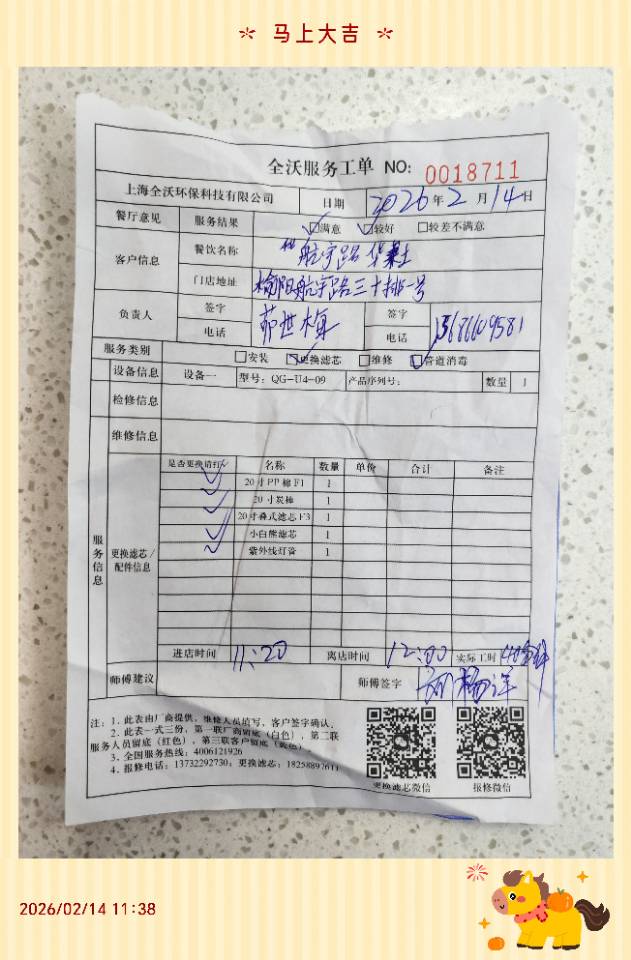 马上大吉
全沃服务工单 NO: 0018711
上海全沃环保科技有限公司 日期 2026年2月14日
餐厅意见 服务结果 满意 较好 较差不满意
客户信息 餐饮名称 航宇路华莱士
门店地址 榆阳航宇路三十排一号
负责人 签字 茹世梅 签字
电话 电话 13686609581
服务类别 安装 更换滤芯 维修 管道消毒
设备信息 设备一 型号: QG-U4-09 产品序列号: 数量 1
检修信息
维修信息
服务信息
更换滤芯/配件信息
是否更换请打√ 名称 数量 单价 合计 备注
20寸PP棉F1 1
20寸炭棒 1
20寸舜式滤芯F3 1
小白熊滤芯 1
紫外线灯管 1
进店时间 11:20 离店时间 12:00 实际工时 40分钟
师傅建议 师傅签字
注: 1. 此表由厂商提供, 维修人员填写, 客户签字确认.
2. 此表一式三份, 第一联厂商留底(白色), 第二联
服务人员留底(红色), 第三联客户留底(黄色).
3. 全国服务热线: 4006121926
4. 报修电话: 13732292730; 更换滤芯:
更换滤芯微信 报修微信
2026/02/14 11:38